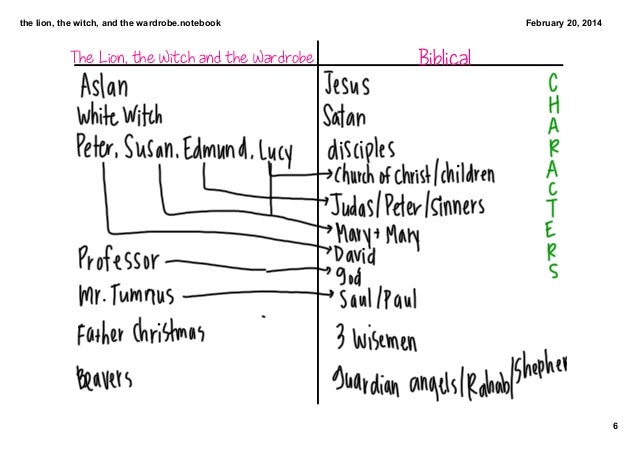 the lion, the witch, and the wardrobe.notebook February 20, 2014
The Lion, the Witch and the Wardrobe Biblical
Aslan Jesus
White Witch Satan
Peter, Susan, Edmund, Lucy disciples
Church of Christ/children
Judas/Peter/sinners
Mary + Mary
David
Professor god
Mr. Tumnus Saul/Paul
Father Christmas 3 wisemen
Beavers guardian angels/Rahab/Shepher
CHARACTERS
6